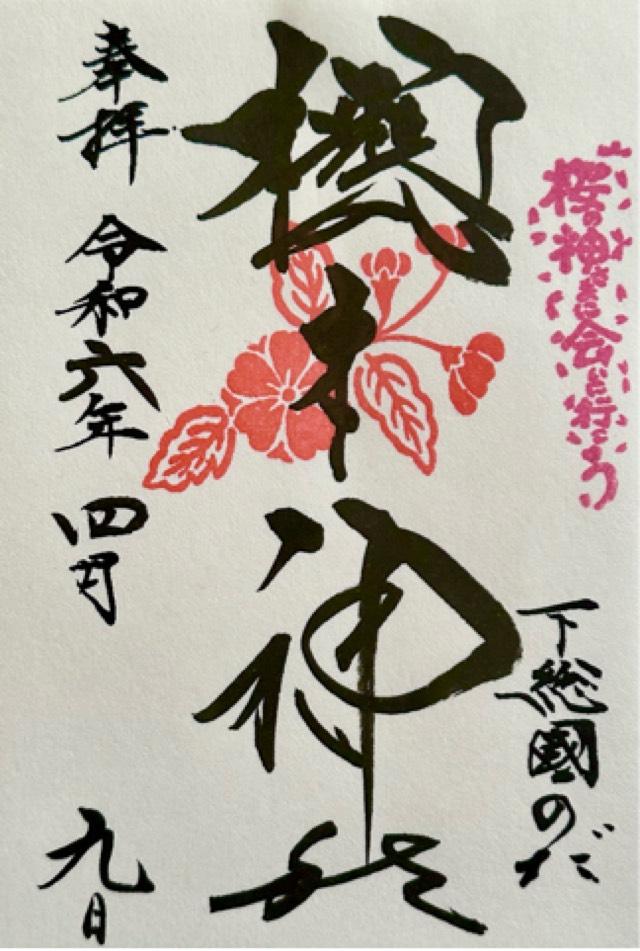 桜の神さまに会いに行こう
下総國のだ
櫻木神社
奉拝 令和六年四月九日